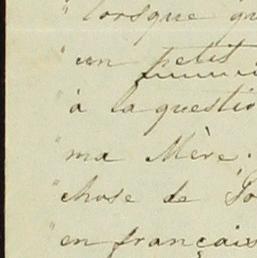 " lorsque qu
" un petit
" à la questio
" ma Mère.
" chose de
" en français